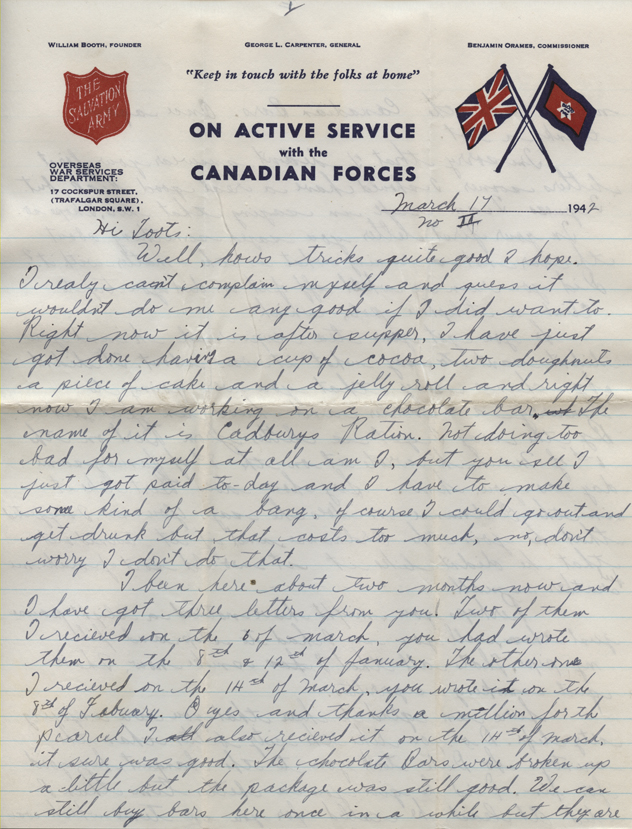 WILLIAM BOOTH, FOUNDER
GEORGE L. CARPENTER, GENERAL
BENJAMIN ORAMES, COMMISSIONER
THE
SALVATION
ARMY
"Keep in touch with the folks at home"
ON ACTIVE SERVICE
with the
CANADIAN FORCES
OVERSEAS
WAR SERVICES
DEPARTMENT:
17 COCKSPUR STREET,
(TRAFALGAR SQUARE),
LONDON, S.W. 1
March 17 1942
no II
Hi Toots:
Well, hows tricks quite good I hope.
I realy can't complain myself and guess it
wouldn't do me any good if I did want to.
Right now it is after supper, I have just
got done having a cup of cocoa, two doughnuts
a piece of cake and a jelly roll and right
now I am working on a chocolate bar, The
name of it is Cadburys Ration. Not doing too
bad for myself at all am I, but you see I
just got paid to-day and I have to make
some kind of a bang, of course I could go out and
get drunk but that costs too much, no, don't
worry I don't do that.
I been here about two months now and
I have got three letters from you. Two of them
I recieved on the 6 of march, you had wrote
them on the 8th & 12th of January. The other one
I recieved on the 14th of March, you wrote it on the
8th of Febuary. O yes and thanks a million for th
pearcel I also recieved it on the 14th of march,
it sure was good. The chocolate Bars were broken up
a little but the package was still good. We can
still buy bars here once in a while but they are